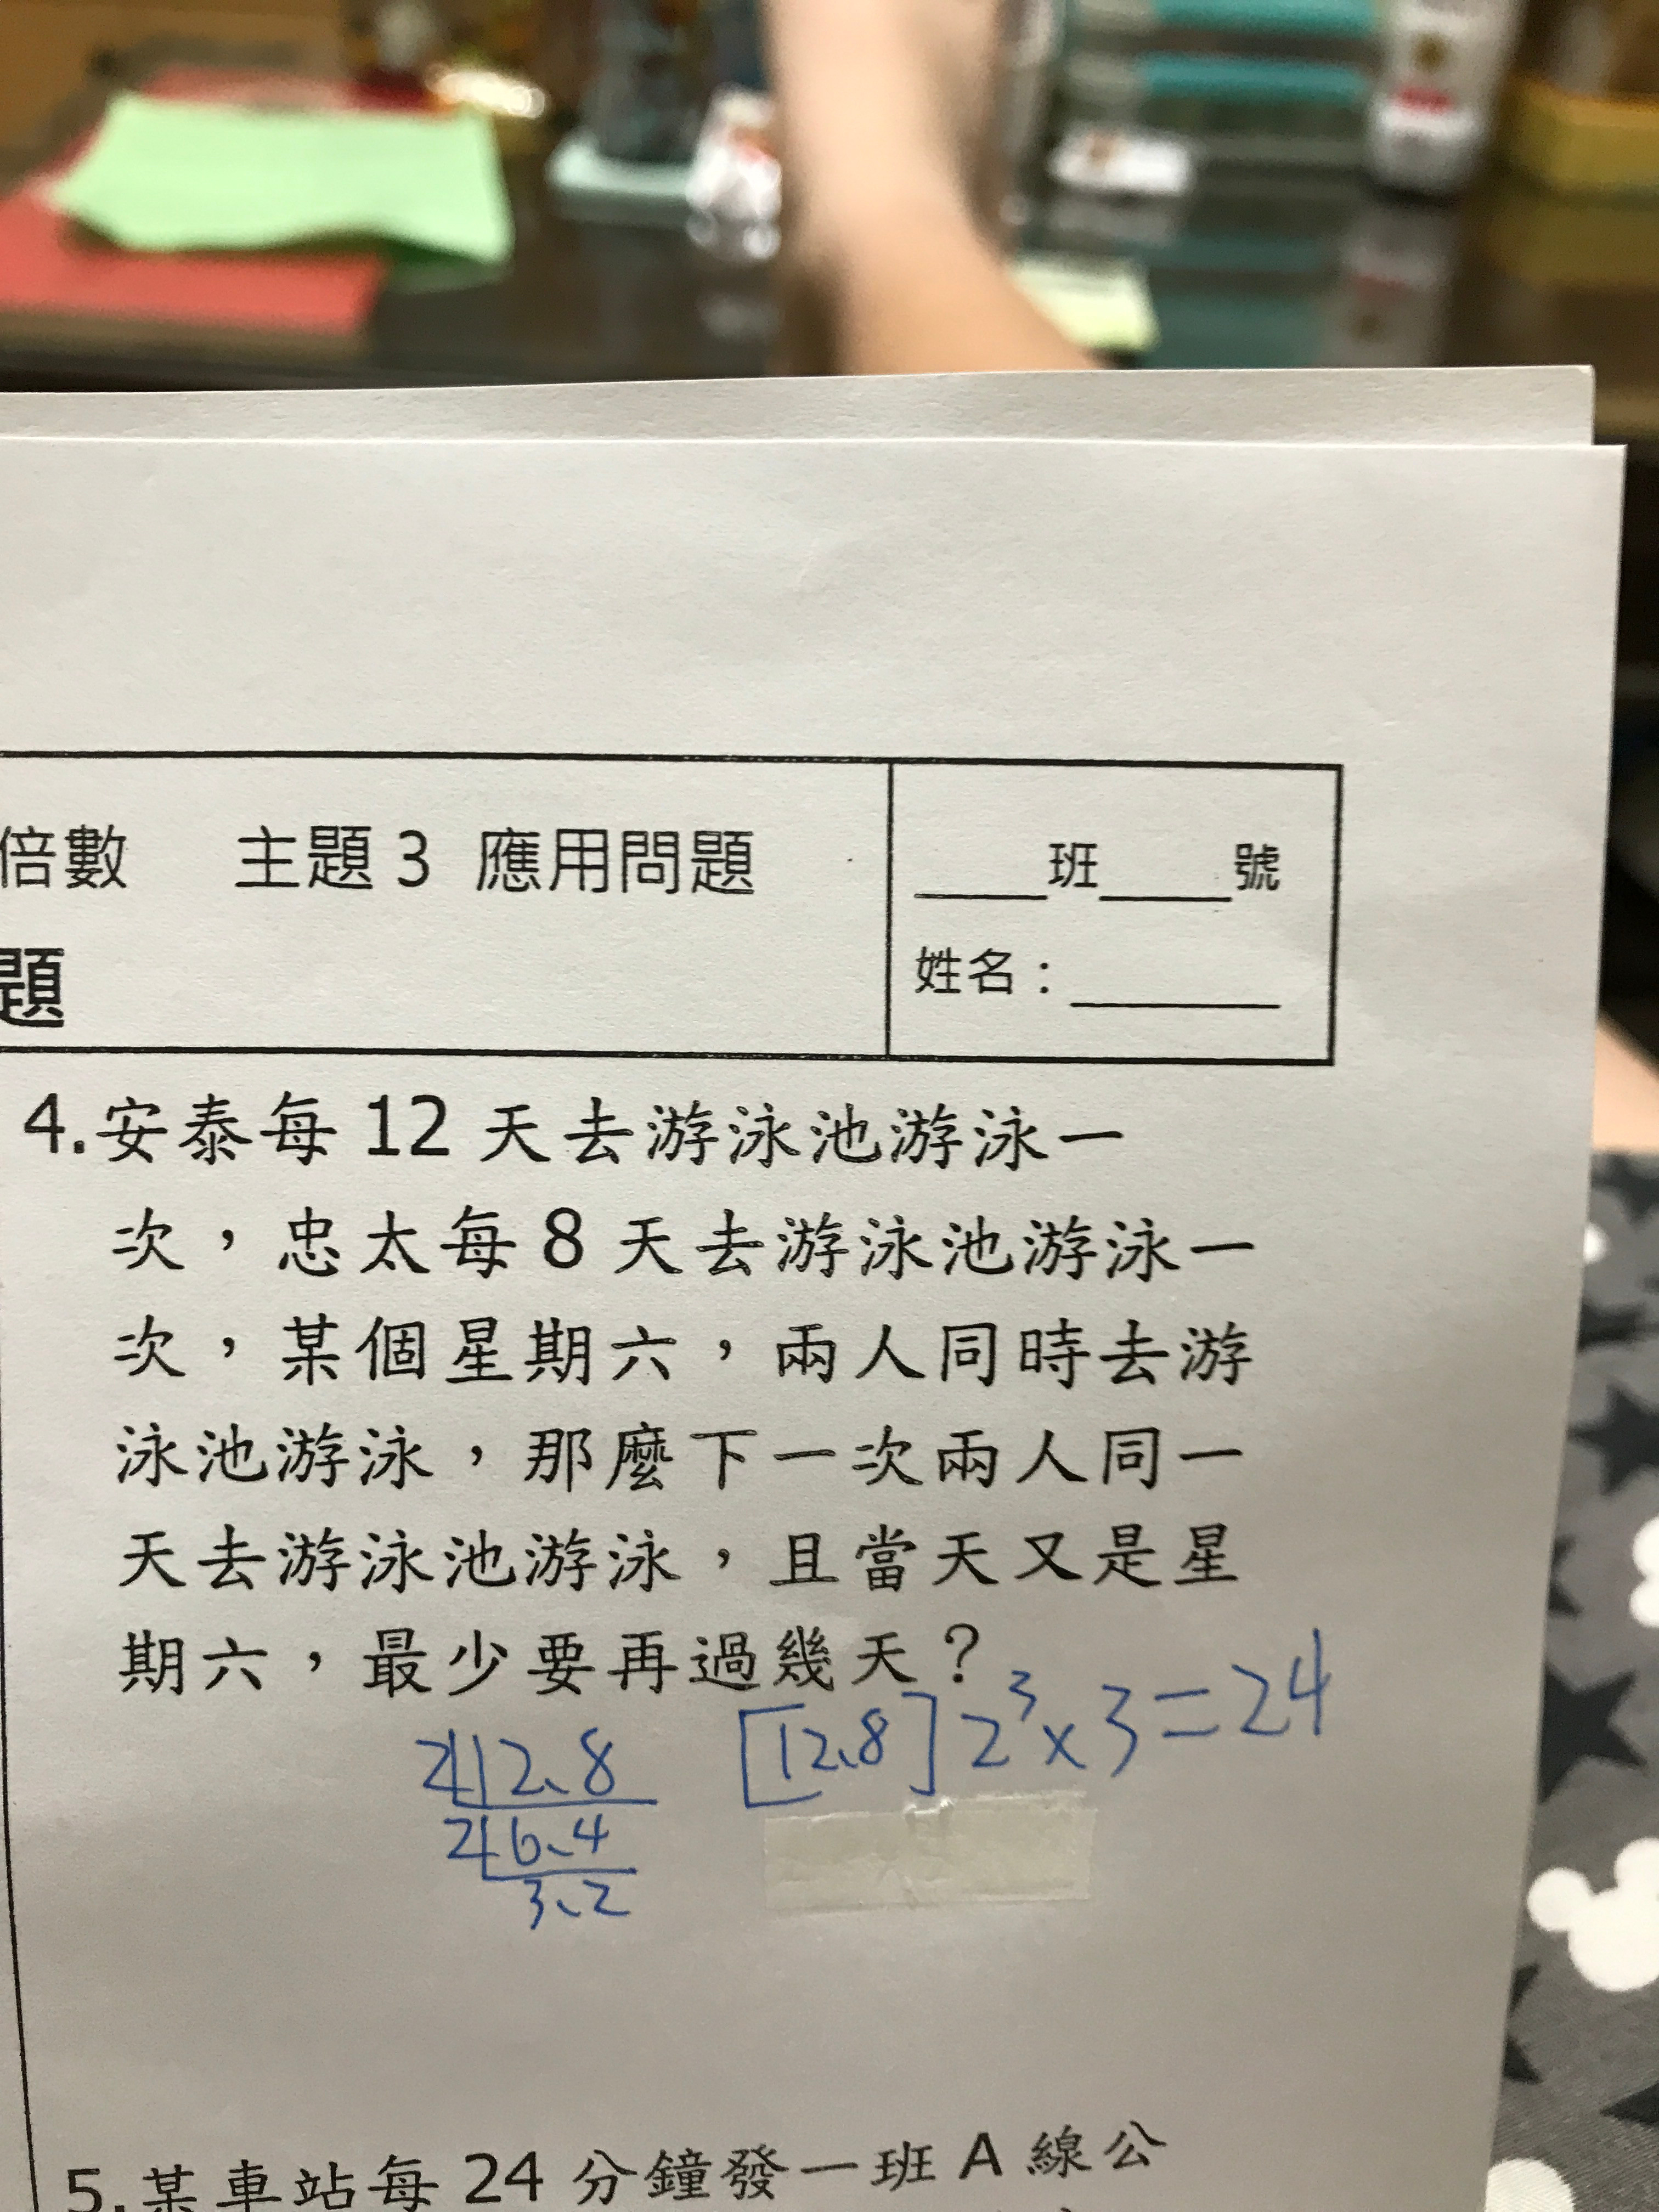 倍數 主題 3 應用問題
題
___班___號
姓名：______
4.安泰每 12 天去游泳池游泳一
次，忠太每 8 天去游泳池游泳一
次，某個星期六，兩人同時去游
泳池游泳，那麼下一次兩人同一
天去游泳池游泳，且當天又是星
期六，最少要再過幾天？
[12、8] 2³×3=24
2|12、8
2|6、4
3、2
5.某車站每 24 分鐘發一班 A 線公